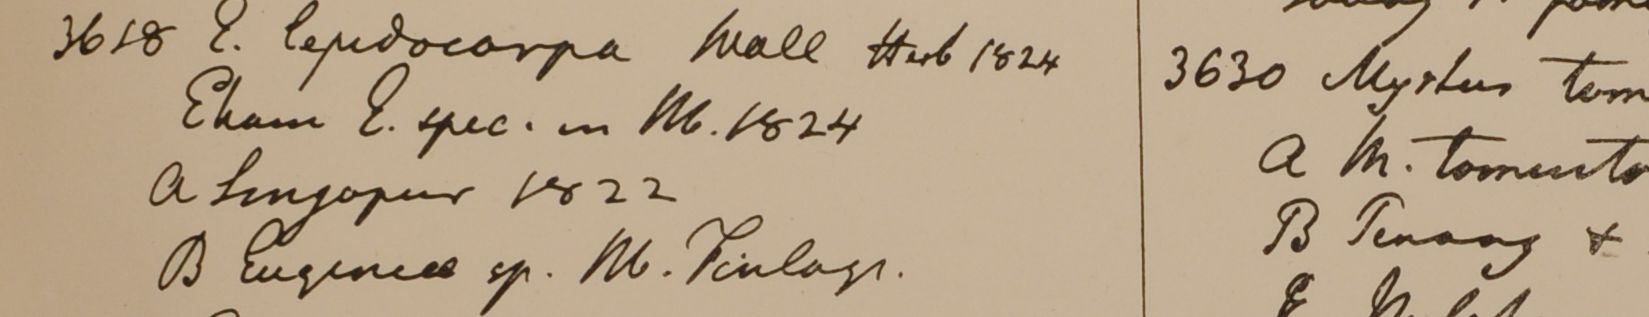 3618 E. lepidocarpa Wall Herb 1824
Eham E. spec. in M. 1824
A Singapur 1822
B Eugeniae sp. M. Finlays.
3630 Myrtus tom
A M. tomento
B Penang &